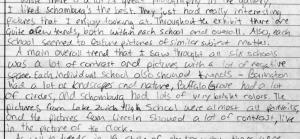 I liked Schomburg's the best. They just had really interesting
pictures that I enjoy looking at. Throughout the exhibit there are
quite a few trends, both within each school and overall. Also, each
school seemed to feature pictures of similar subject matter.
A main overall trend that I saw through all six schools
was a lot of contrast and pictures with a lot of negative
space. Each individual school also showed trends - Barrington
was a lot of landscapes and nature, Buffalo Grove had a lot
of circles, and Schaumburg had lots of very bright colors. The
pictures from Lake Zurich High School were almost all portraits,
and the pictures from Lincoln showed a lot of contrast, like
in the picture of the clock.